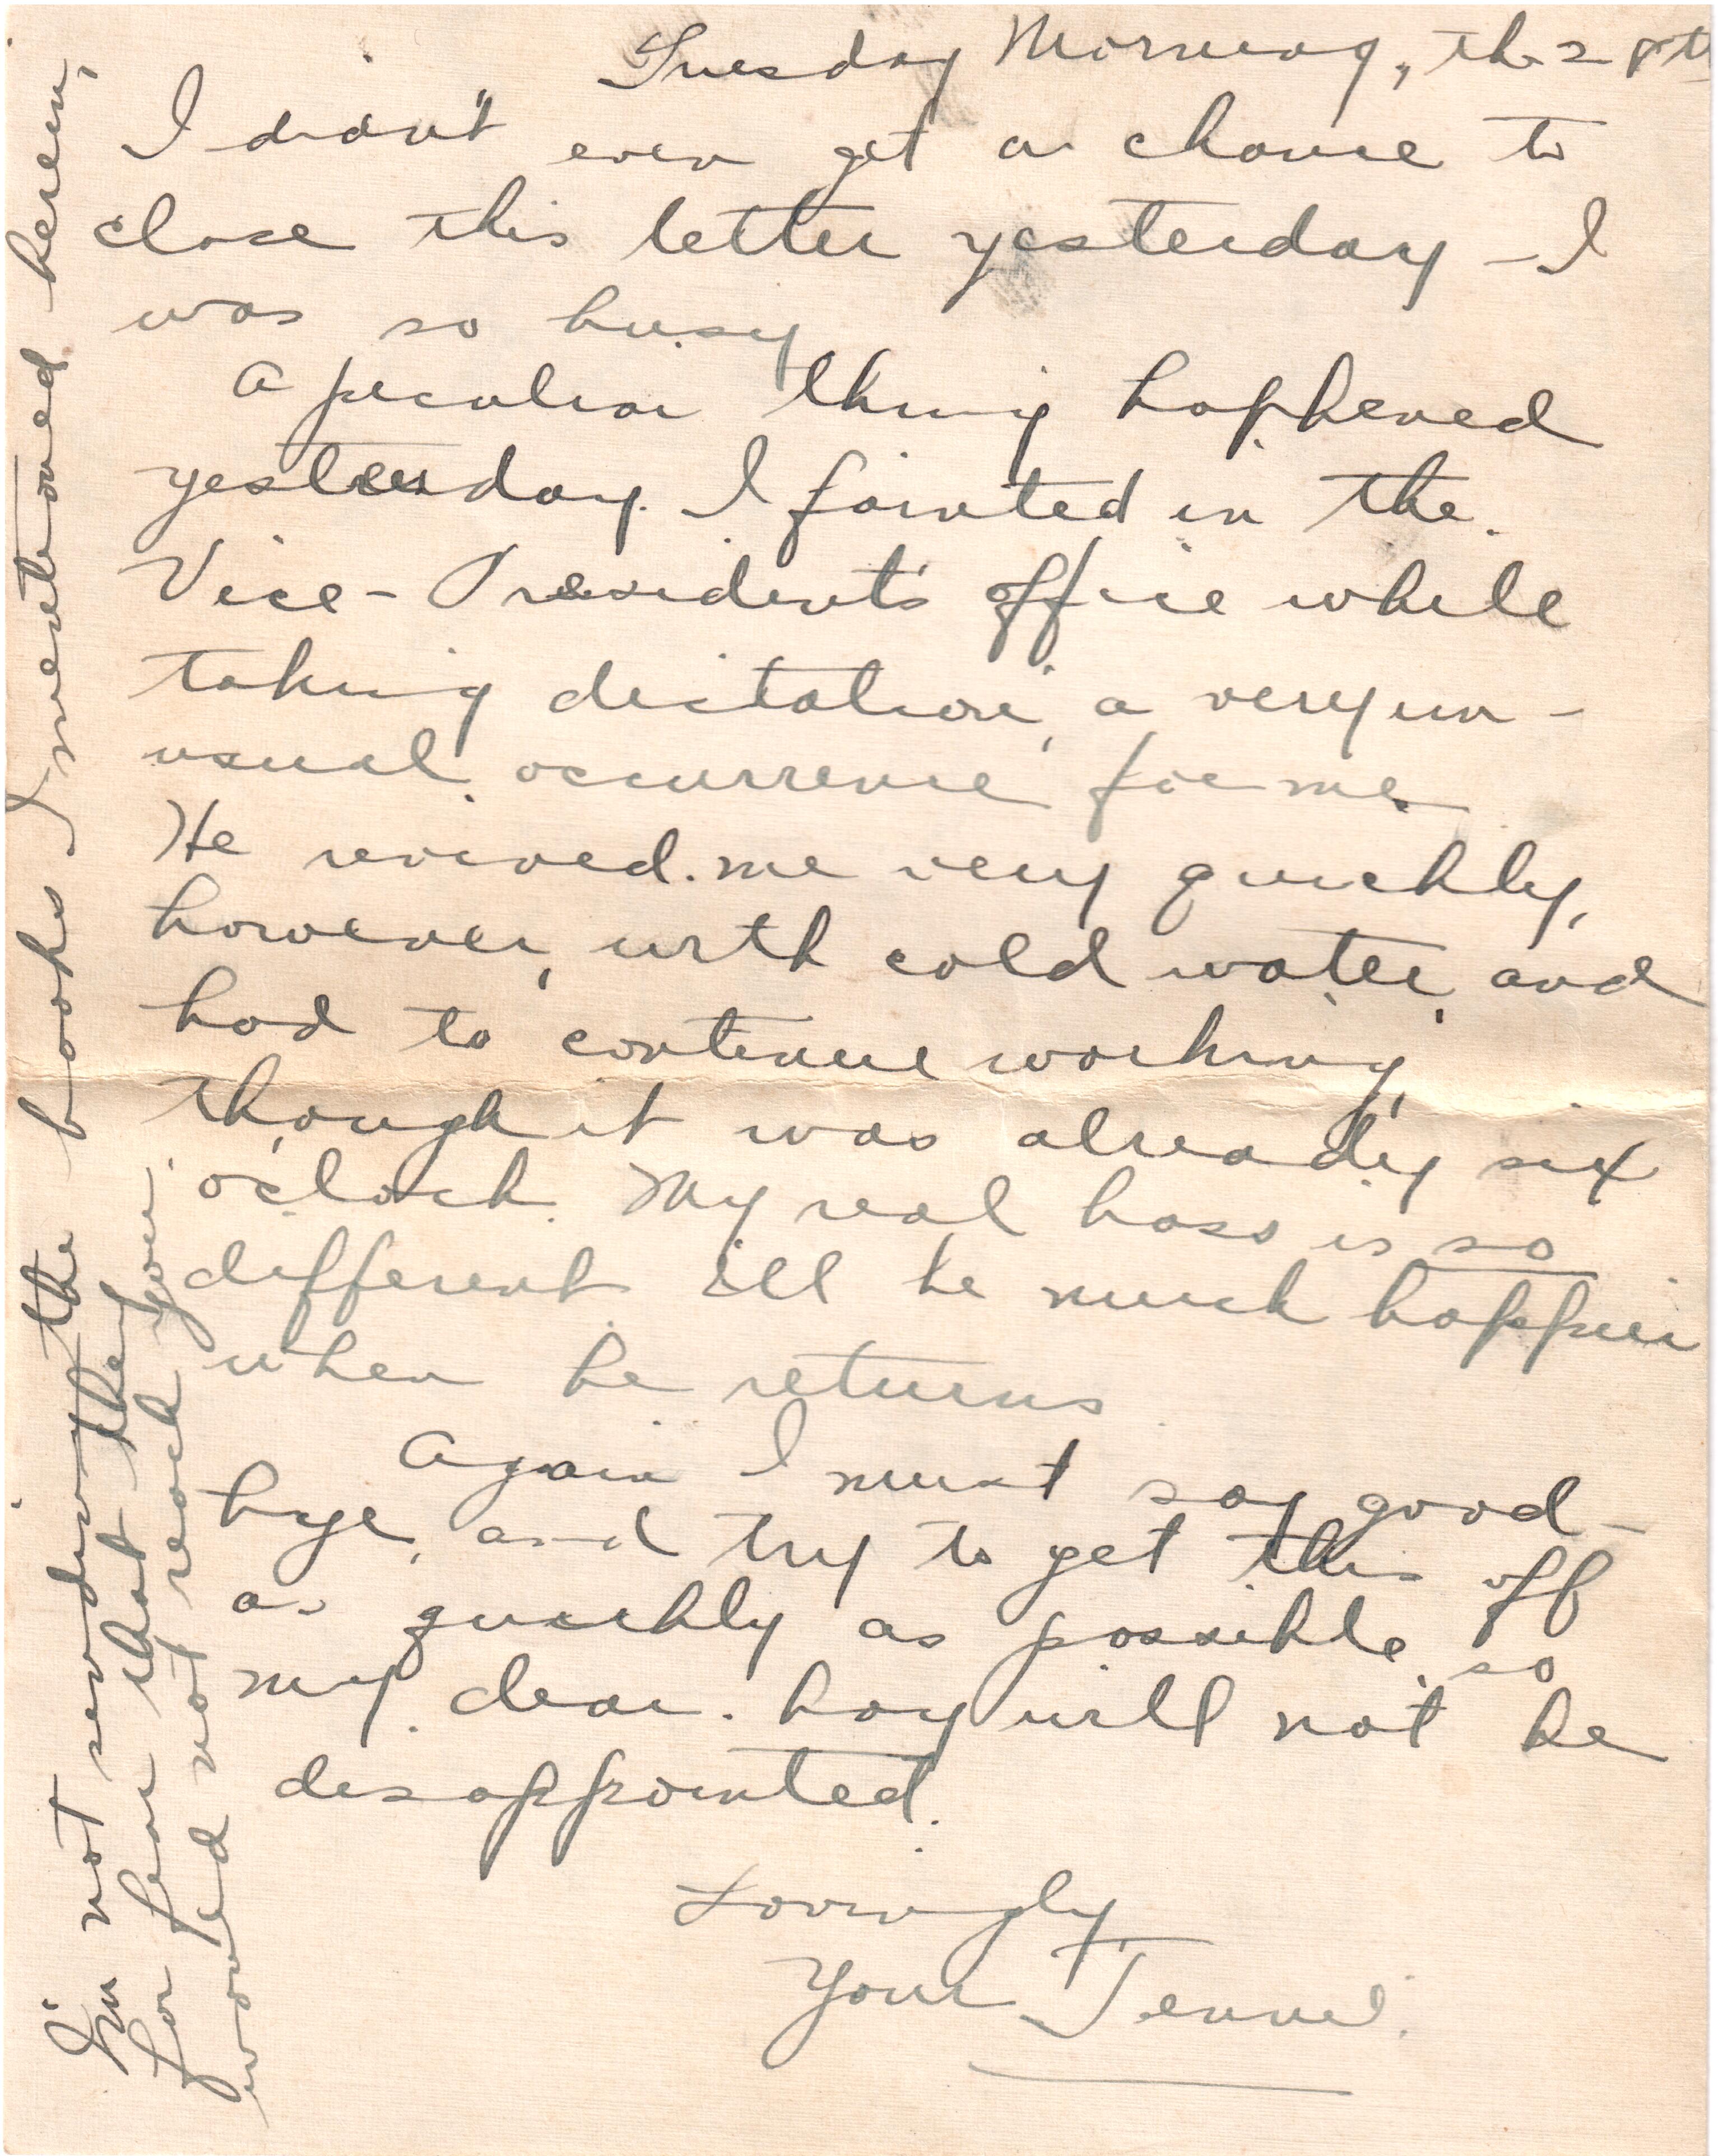 Tuesday Morning, the 28th
I didn't even get a chance to
close this letter yesterday – I
was so busy
A peculiar thing happened
yesterday. I fainted in the
Vice-President's office while
taking dictation, a very un-
usual occurrence for me
He revived me very quickly,
however, with cold water, and
had to continue working,
though it was already six
o'clock. My real boss is so
different. I'll be much happier
when he returns.
Again I must say good-
bye, and try to get this off
as quickly as possible, so
my dear boy will not be
disappointed.
Lovingly,
Your Jennie.
I'm not sending the books I mentioned herein,
for fear that they
would not reach you.